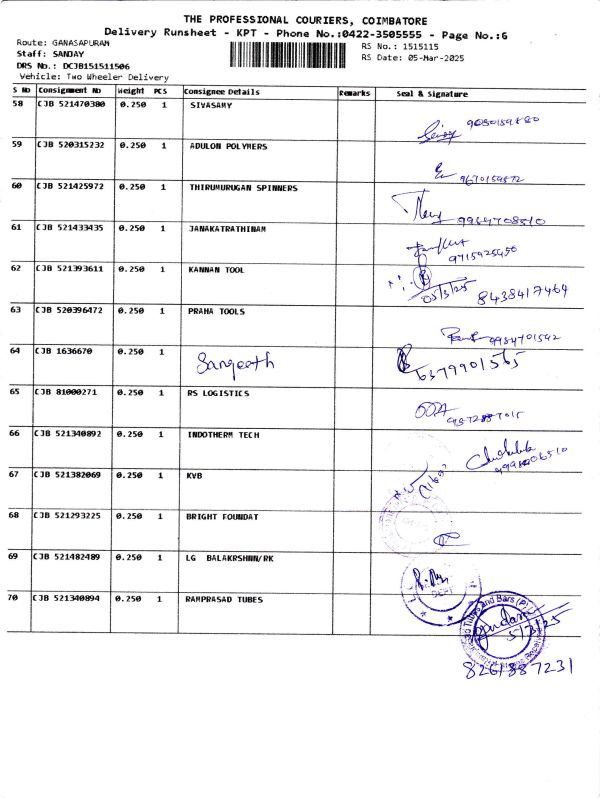 THE PROFESSIONAL COURIERS, COIMBATORE
Delivery Runsheet - KPT - Phone No.:0422-3505555 - Page No.:6
Route: GANASAPURAM
RS No.: 1515115
Staff: SANJAY
RS Date: 05-Mar-2025
DRS No.: DCJB151511506
Vehicle: Two Wheeler Delivery
S No Consignment No Weight PCS Consignee Details Remarks Seal & Signature
58 CJB 521470380 0.250 1 SIVASAMY
59 CJB 520315232 0.250 1 ADULON POLYMERS
60 CJB 521425972 0.250 1 THIRUMURUGAN SPINNERS
61 CJB 521433435 0.250 1 JANAKATRATHINAM
9715925450
62 CJB 521393611 0.250 1 KANNAN TOOL
05/3/25 8438417464
63 CJB 520396472 0.250 1 PRAHA TOOLS
9984701542
64 CJB 1636670 0.250 1 Sangeeth 6379901565
65 CJB 81000271 0.250 1 RS LOGISTICS
66 CJB 521340892 0.250 1 INDOTHERM TECH
67 CJB 521382069 0.250 1 KVB
68 CJB 521293225 0.250 1 BRIGHT FOUNDAT
69 CJB 521482489 0.250 1 LG BALAKRSHNN/RK
70 CJB 521340894 0.250 1 RAMPRASAD TUBES
Tubes and Bars (P)
5/3/25
8261887231